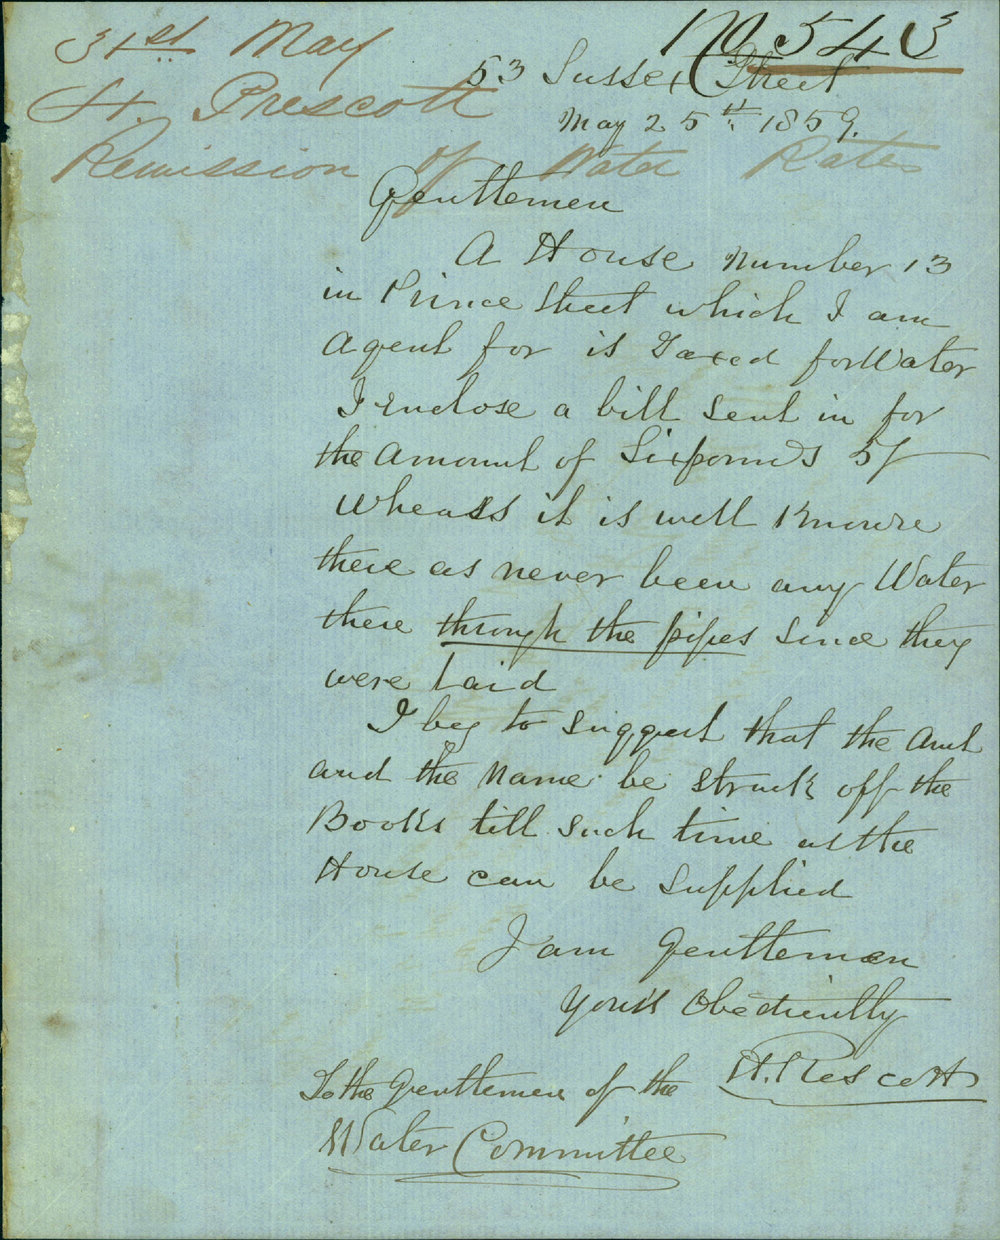 31st May
No 543
H. Prescott
53 Sussex Street
May 25th 1859.
Remission of Water Rates
Gentlemen
A House Number 13
in Prince Street which I am
Agent for is Taxed for Water
I Enclose a bill sent in for
the Amount of Six pounds 5/
Wheass it is well Knowre
there as never been any Water
there through the pipes since they
were laid
I beg to suggest that the Amt
and the Name be struk off the
Books till such time as the
House can be supplied
I am Gentlemen
Yours Obediently
H. Prescott
To the Gentlemen of the
Water Committee